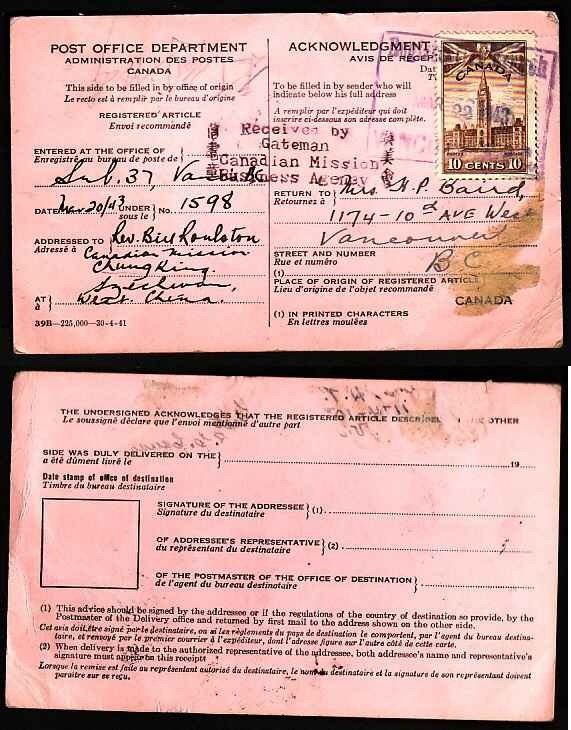 POST OFFICE DEPARTMENT
ADMINISTRATION DES POSTES
CANADA
This side to be filled in by office of origin
Le recto est à remplir par le bureau d'origine
REGISTERED ARTICLE
Envoi recommandé
ENTERED AT THE OFFICE OF
Enregistré au bureau de poste de
Sub. 37, Van BC
DATE 20/43 UNDER No. 1598
sous le
ADDRESSED TO Rev. Bill Roulston
Adressé à Canadian Mission
ChungKing.
Szechwan,
AT West China.
à
39B—225,000—30-4-41
ACKNOWLEDGMENT
AVIS DE RÉCEP
Dat
To be filled in by sender who will
indicate below his full address
A remplir par l'expéditeur qui doit
inscrire ci-dessous son adresse complète.
Received by
Gateman
Canadian Mission
Business Agency
CANADA
10 CENTS 10
RETURN TO Mrs. H. P. Baird,
Retournez à
1174-10th AVE West
Vancouver
STREET AND NUMBER
Rue et numéro
B C
(1)
PLACE OF ORIGIN OF REGISTERED ARTICLE
Lieu d'origine de l'objet recommandé
CANADA
(1) IN PRINTED CHARACTERS
En lettres moulées
THE UNDERSIGNED ACKNOWLEDGES THAT THE REGISTERED ARTICLE DESCRIBED THE OTHER
Le soussigné déclare que l'envoi mentionné d'autre part
SIDE WAS DULY DELIVERED ON THE 19
a été dûment livré le
Date stamp of office of destination
Timbre du bureau destinataire
SIGNATURE OF THE ADDRESSEE (1)
Signature du destinataire
OF ADDRESSEE'S REPRESENTATIVE (2)
du représentant du destinataire
OF THE POSTMASTER OF THE OFFICE OF DESTINATION
de l'agent du bureau destinataire
(1) This advice should be signed by the addressee or if the regulations of the country of destination so provide, by the
Postmaster of the Delivery office and returned by first mail to the address shown on the other side.
Cet avis doit être signé par le destinataire, ou si les règlements du pays de destination le comportent, par l'agent du bureau destina-
taire, et renvoyé par le premier courrier à l'expéditeur, dont l'adresse figure sur l'autre côté de cette carte.
(2) When delivery is made to the authorized representative of the addressee, both addressee's name and representative's
signature must appear on this receipt.
Lorsque la remise est faite au représentant autorisé du destinataire, le nom du destinataire et la signature de son représentant doivent
paraître sur ce reçu.